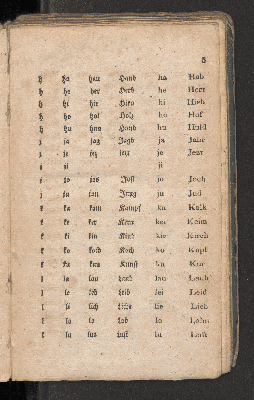 5
h ha han Hand ha Hab
h he her Herb he Herr
h hi hir Hirn hi Hieb
h ho hol Holz ho Hof
h hu hun Hund hu Huld
j ja jag Jagd ja Jahr
j je jez jezt je
j ji ji
j jo jos Jost jo Joch
j ju jun Jung ju Jud
k ka kam Kampf ka Kalk
k ke ker Kern ker Keim
k ki kin Kind kir Kirch
k ko koch Koch ko Kopf
k ku kun Kunst ku Kur
l la lan Land lau Laub
l le leb leib lei Leid
l li lich Licht lie Lieb
l lo lo Lob lo Lohn
l lu lus lust lu Luft